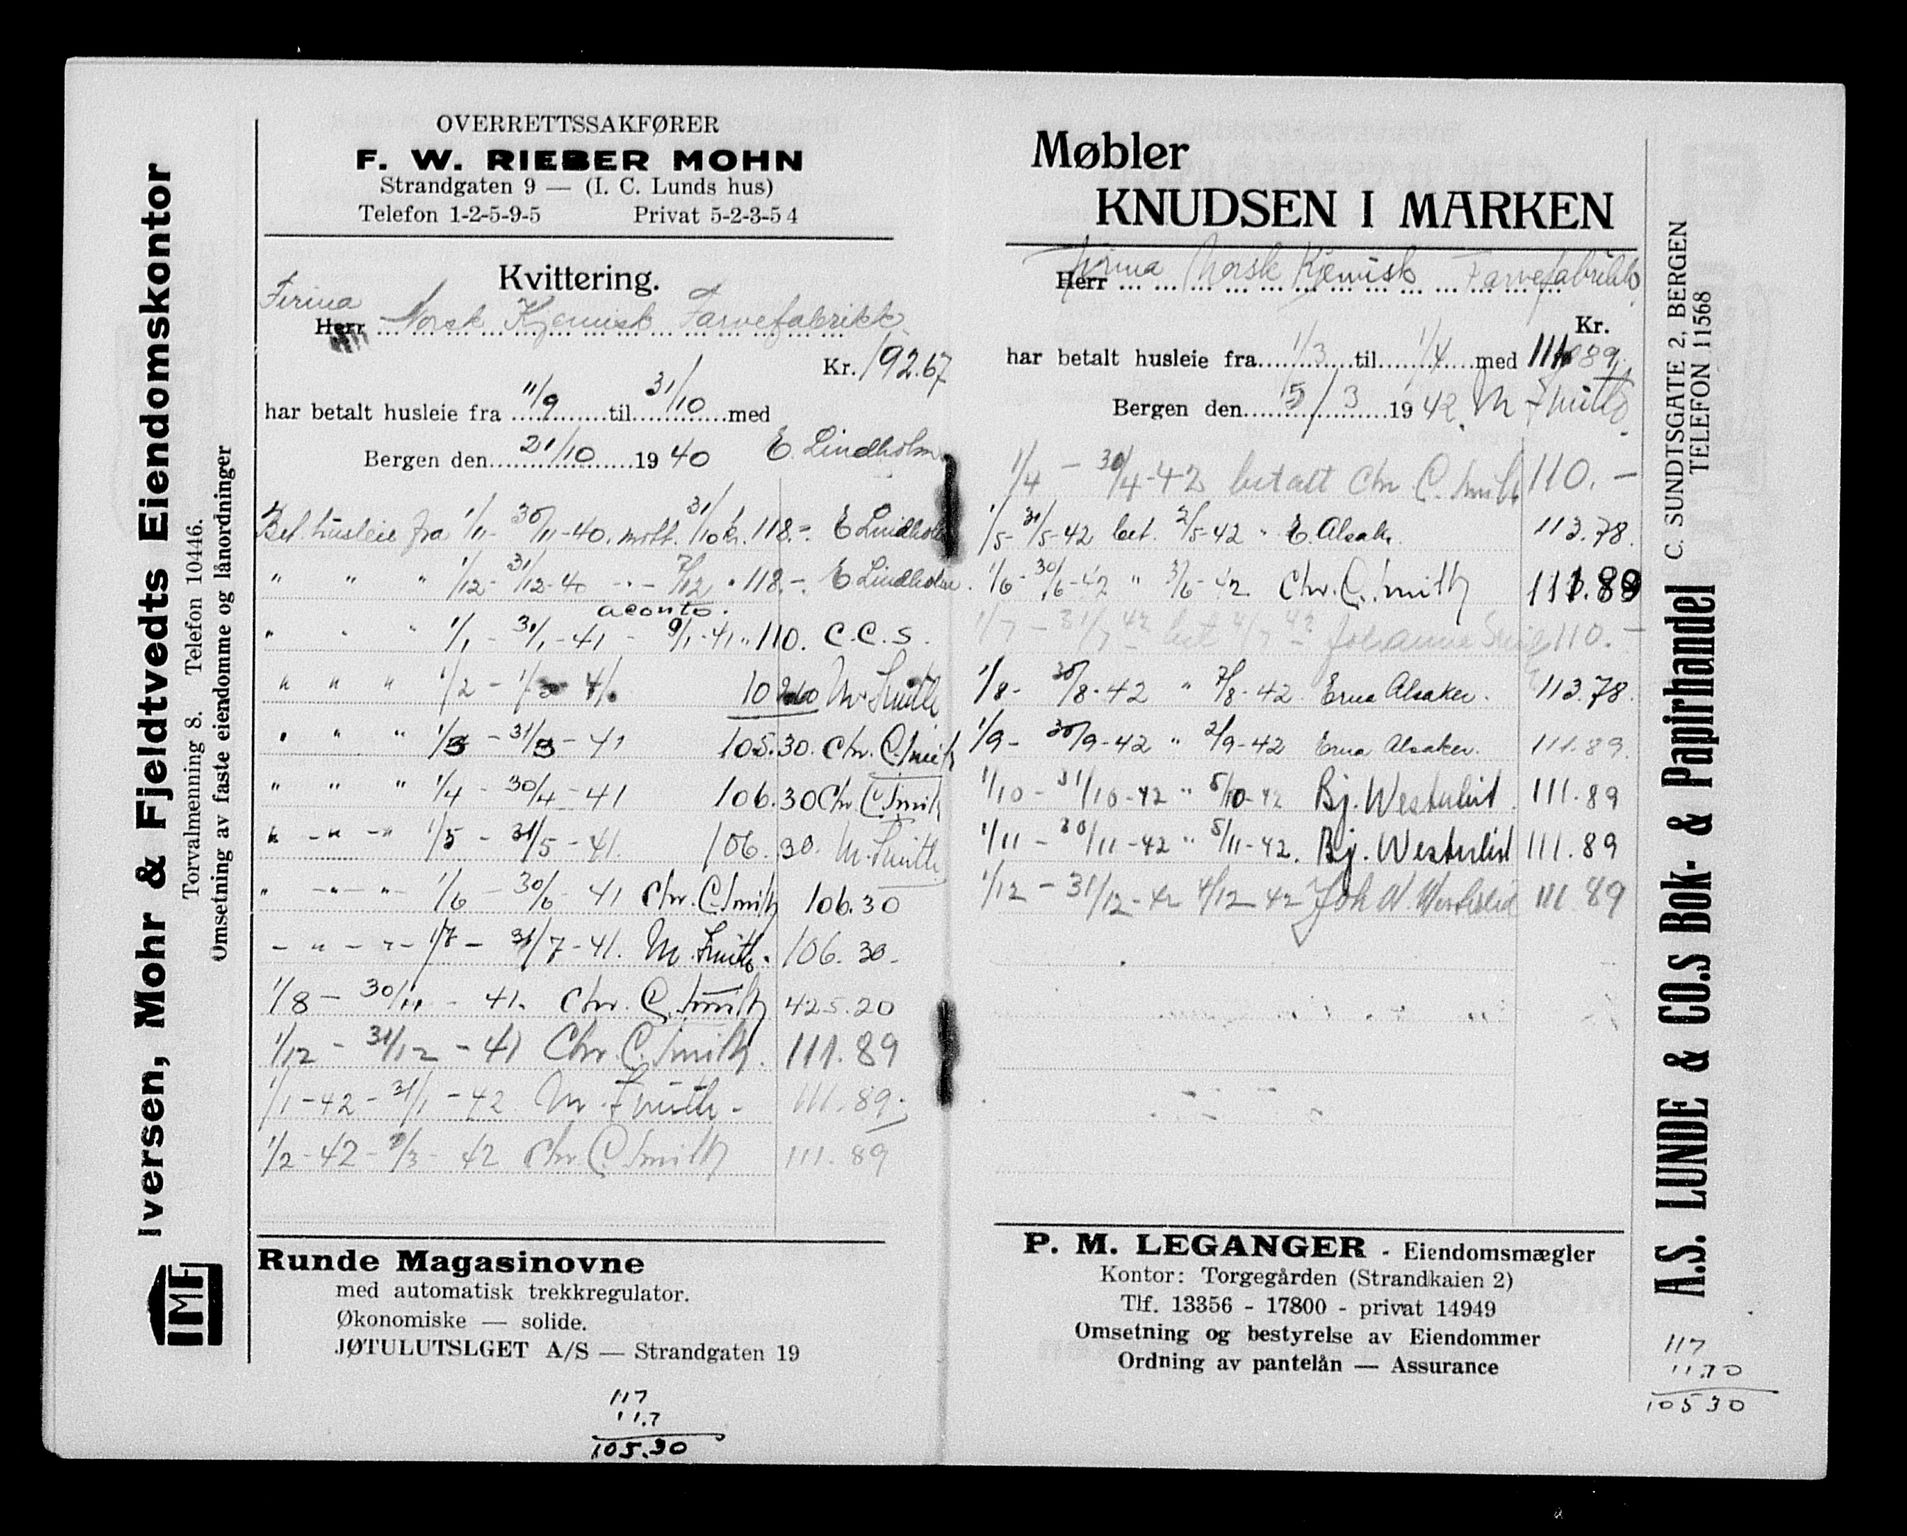 Iversen, Mohr & Fjeldtvedts Eiendomskontor
Torvalmenning 8. Telefon 10446.
Omsetning av faste eiendomme og lånordninger
IMF
OVERRETTSSAKFØRER
F. W. RIEBER MOHN
Strandgaten 9 — (I. C. Lunds hus)
Telefon 1-2-5-9-5 Privat 5-2-3-5 4
Kvittering.
Firma
Herr Norsk Kjemisk Farvefabrikk.
Kr. 192.67
har betalt husleie fra 11/9 til 31/10 med
Bergen den 21/10 1940 E. Lindholm
Bet. husleie fra 1/11 - 30/11-40. mott. 31/10 kr. 118.- E Lindholm
" " " 1/12 - 31/12-40 - " - 7/12 " 118.- E Lindholm.
aconto.
" " " 1/1 - 31/1-41 - 9/1-41 " 110. C.C.S.
" " " 1/2 - 1/3 41. M. Smith
" " " 1/3 - 31/3 - 41 105.30. Chr. C. Smith
" " " 1/4 - 30/4 - 41 106.30 Chr. C. Smith
" - " - " 1/5 - 31/5 - 41. 106.30. M. Smith
" - " - " - 1/6 - 30/6 - 41 Chr. C. Smith 106.30
- " - " - 1/7 - 31/7 - 41. M. Smith. 106.30-
1/8 - 30/11 - 41. Chr. C. Smith 425.20
1/12 - 31/12 - 41 Chr. C. Smith. 111.89
1/1 - 42 - 31/1 - 42 M. Smith - 111.89.
1/2 - 42 - /3 - 42 Chr. C. Smith 111.89
Runde Magasinovne
med automatisk trekkregulator.
Økonomiske — solide.
JØTULUTSLGET A/S — Strandgaten 19
117
11.7
105.30
Møbler
KNUDSEN I MARKEN
Herr Firma Norsk Kjemisk Farvefabrikk
Kr.
har betalt husleie fra 1/3 til 1/4 med 111.89.
Bergen den 5/3 1942. M Smith.
1/4 - 30/4-42 betalt Chr C. Smith 110.-
1/5 - 31/5-42 bet. 2/5-42 " E Alsaker. 113.78.
1/6 - 30/6-42 " 3/6-42 Chr. C. Smith 111.89
1/7 - 31/7 42 bet 4/7 42 - Johanne 110.-
1/8 - 30/8-42 " 7/8-42 Erna Alsaker. 113.78.
1/9 - 30/9-42 " 2/9-42 Erna Alsaker. 111.89.
1/10 - 31/10-42 " 5/10-42 Bj. Westerlid. 111.89
1/11 - 30/11-42 " 5/11-42. Bj. Westerlid 111.89
1/12 - 31/12-42 4/12 42 Joh W. Westerlid 111.89
P. M. LEGANGER - Eiendomsmægler
Kontor: Torgegården (Strandkaien 2)
Tlf. 13356 - 17800 - privat 14949
Omsetning og bestyrelse av Eiendommer
Ordning av pantelån — Assurance
A.S. LUNDE & CO.s Bok- & Papirhandel
C. SUNDTSGATE 2, BERGEN
TELEFON 11568
117
11.70
105 30